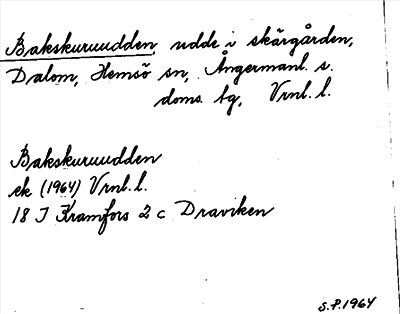 Bakskuruudden, udde i skärgården,
Dalom, Hemsö sn, Ångermanl. s.
doms. tg, Vrnl. l.
Bakskuruudden
ek (1964) Vrnl. l.
18 I Kramfors 2 c Draviken
S.P. 1964